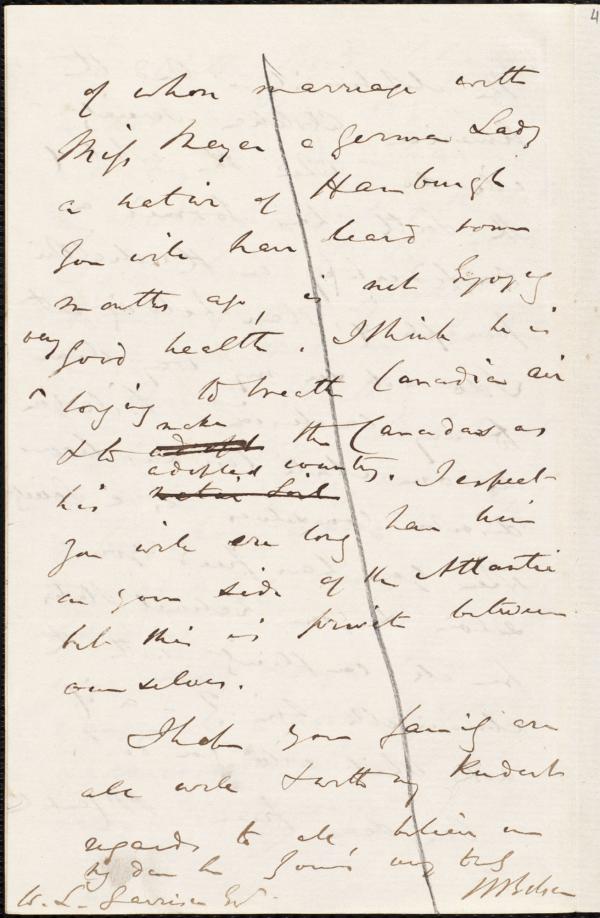 4
of whose marriage with
Miss Meyer a German Lady
a native of Hamburgh
you will have heard some
months ago, is not enjoying
very good health. I think he is
longing to breath Canadian air
& to make the Canadas as
his adopted country. I expect
you will ere long have him
on your side of the Atlantic
but this is private between
ourselves.
I hope your family are
all well & with my kindest
regards to all, believe me
my dear Sir Yours very truly
W. L. Garrison Esq.